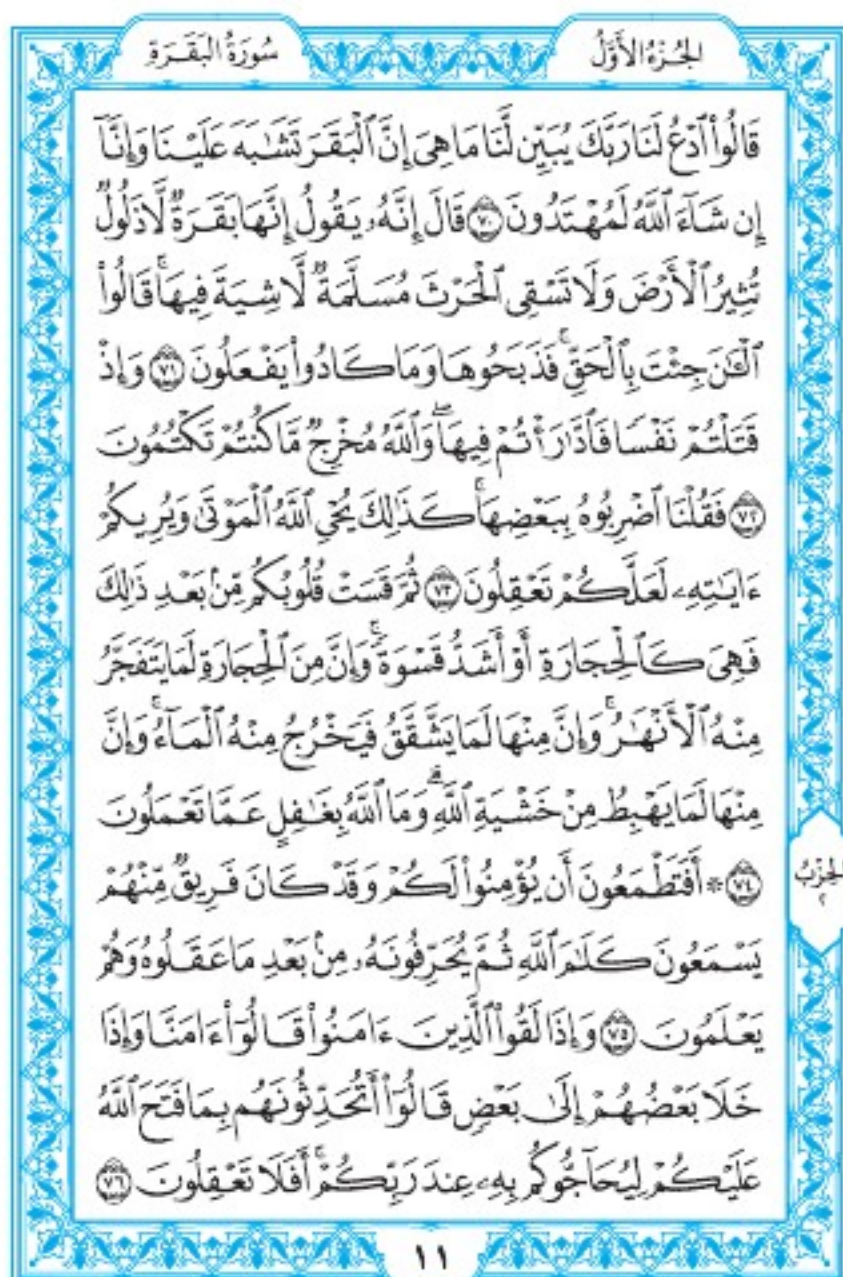 الجُزْءُ الأَوَّلُ
سُورَةُ البَقَرَةِ
قَالُوا۟ ٱدْعُ لَنَا رَبَّكَ يُبَيِّن لَّنَا مَا هِىَ إِنَّ ٱلْبَقَرَ تَشَٰبَهَ عَلَيْنَا وَإِنَّآ
إِن شَآءَ ٱللَّهُ لَمُهْتَدُونَ ۝٧٠ قَالَ إِنَّهُۥ يَقُولُ إِنَّهَا بَقَرَةٌ لَّا ذَلُولٌ
تُثِيرُ ٱلْأَرْضَ وَلَا تَسْقِى ٱلْحَرْثَ مُسَلَّمَةٌ لَّا شِيَةَ فِيهَا ۚ قَالُوا۟
ٱلْـَٰٔنَ جِئْتَ بِٱلْحَقِّ ۚ فَذَبَحُوهَا وَمَا كَادُوا۟ يَفْعَلُونَ ۝٧١ وَإِذْ
قَتَلْتُمْ نَفْسًا فَٱدَّٰرَْٰٔتُمْ فِيهَا ۖ وَٱللَّهُ مُخْرِجٌ مَّا كُنتُمْ تَكْتُمُونَ
۝٧٢ فَقُلْنَا ٱضْرِبُوهُ بِبَعْضِهَا ۚ كَذَٰلِكَ يُحْىِ ٱللَّهُ ٱلْمَوْتَىٰ وَيُرِيكُمْ
ءَايَٰتِهِۦ لَعَلَّكُمْ تَعْقِلُونَ ۝٧٣ ثُمَّ قَسَتْ قُلُوبُكُم مِّنۢ بَعْدِ ذَٰلِكَ
فَهِىَ كَٱلْحِجَارَةِ أَوْ أَشَدُّ قَسْوَةً ۚ وَإِنَّ مِنَ ٱلْحِجَارَةِ لَمَا يَتَفَجَّرُ
مِنْهُ ٱلْأَنْهَٰرُ ۚ وَإِنَّ مِنْهَا لَمَا يَشَّقَّقُ فَيَخْرُجُ مِنْهُ ٱلْمَآءُ ۚ وَإِنَّ
مِنْهَا لَمَا يَهْبِطُ مِنْ خَشْيَةِ ٱللَّهِ ۗ وَمَا ٱللَّهُ بِغَٰفِلٍ عَمَّا تَعْمَلُونَ
۝٧٤ * أَفَتَطْمَعُونَ أَن يُؤْمِنُوا۟ لَكُمْ وَقَدْ كَانَ فَرِيقٌ مِّنْهُمْ
الحِزْبُ
٢
يَسْمَعُونَ كَلَٰمَ ٱللَّهِ ثُمَّ يُحَرِّفُونَهُۥ مِنۢ بَعْدِ مَا عَقَلُوهُ وَهُمْ
يَعْلَمُونَ ۝٧٥ وَإِذَا لَقُوا۟ ٱلَّذِينَ ءَامَنُوا۟ قَالُوٓا۟ ءَامَنَّا وَإِذَا
خَلَا بَعْضُهُمْ إِلَىٰ بَعْضٍ قَالُوٓا۟ أَتُحَدِّثُونَهُم بِمَا فَتَحَ ٱللَّهُ
عَلَيْكُمْ لِيُحَآجُّوكُم بِهِۦ عِندَ رَبِّكُمْ ۚ أَفَلَا تَعْقِلُونَ ۝٧٦
١١